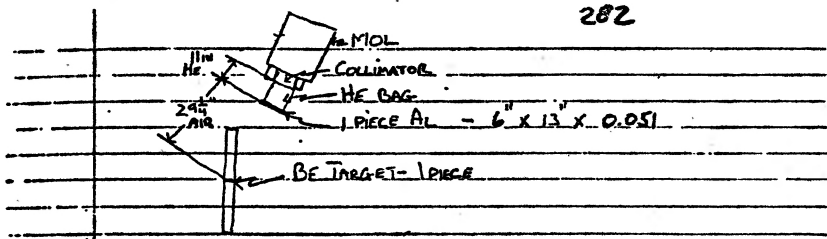 282
MOL
11 IN
HE
COLLIMATOR
HE BAG
29 1/4"
AIR
1 PIECE AL - 6" X 13" X 0.051
BE TARGET - 1 PIECE